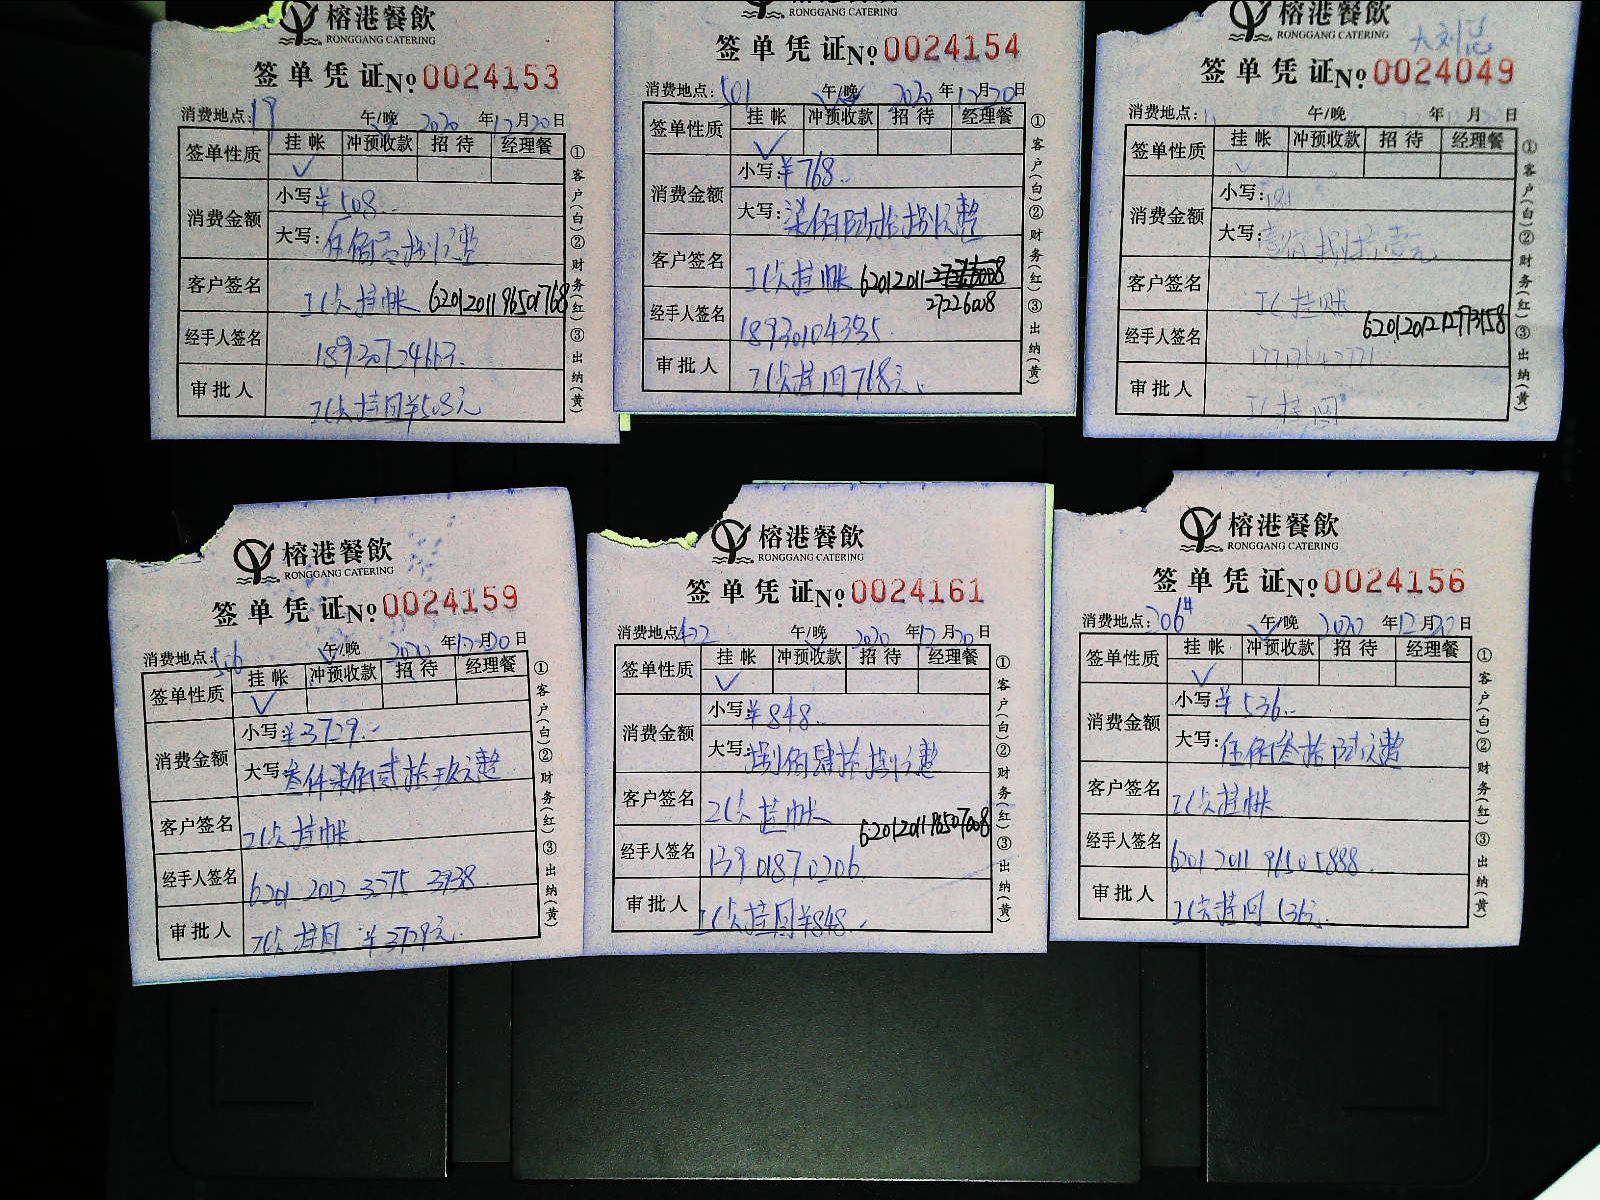 榕港餐飲
RONGGANG CATERING
签单凭证№0024153
消费地点:19 午/晚 2020年12月20日
签单性质 挂帐 冲预收款 招待 经理餐
消费金额 小写:¥508..
大写:伍佰零捌元整
客户签名 挂帐 6201201196501768
经手人签名 18930724663.
审批人 挂回¥508元
①客户(白)②财务(红)③出纳(黄)
RONGGANG CATERING
签单凭证№0024154
消费地点:501 午/晚 2020年12月20日
签单性质 挂帐 冲预收款 招待 经理餐
消费金额 小写:¥768..
大写:柒佰陆拾捌元整
客户签名 挂帐 62012011
27226008
经手人签名 18930104335.
审批人 挂回768元
①客户(白)②财务(红)③出纳(黄)
榕港餐飲
RONGGANG CATERING
签单凭证№0024049
消费地点: 午/晚 年 月 日
签单性质 挂帐 冲预收款 招待 经理餐
消费金额 小写:181
大写:壹佰捌拾壹元
客户签名 挂账
经手人签名 6201201212773158
审批人 挂回
①客户(白)②财务(红)③出纳(黄)
榕港餐飲
RONGGANG CATERING
签单凭证№0024159
消费地点:506 午/晚 2020年12月20日
签单性质 挂帐 冲预收款 招待 经理餐
消费金额 小写:¥3729.-
大写:叁仟柒佰贰拾玖元整
客户签名 挂帐.
经手人签名 6201 2012 3275 3938
审批人 挂回 ¥3729元.
①客户(白)②财务(红)③出纳(黄)
榕港餐飲
RONGGANG CATERING
签单凭证№0024161
消费地点:422 午/晚 2020年12月20日
签单性质 挂帐 冲预收款 招待 经理餐
消费金额 小写:¥848..
大写:捌佰肆拾捌元整
客户签名 挂帐
6201201196507008
经手人签名 13901870206
审批人 挂回¥848.-
①客户(白)②财务(红)③出纳(黄)
榕港餐飲
RONGGANG CATERING
签单凭证№0024156
消费地点:206# 午/晚 2020年12月20日
签单性质 挂帐 冲预收款 招待 经理餐
消费金额 小写:¥536..
大写:伍佰叁拾陆元整
客户签名 挂帐
经手人签名 6201 2011 9650 5888
审批人 挂回 536元.
①客户(白)②财务(红)③出纳(黄)